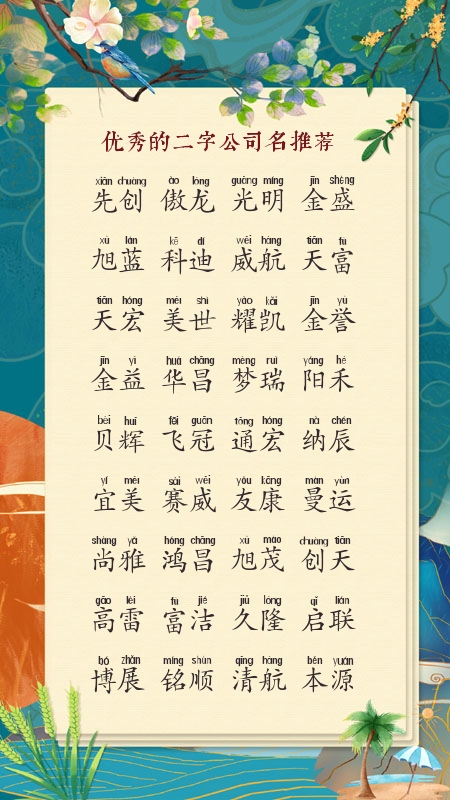 优秀的二字公司名推荐
xiān chuàng ào lóng guāng míng jīn shèng
先创 傲龙 光明 金盛
xù lán kē dí wēi háng tiān fù
旭蓝 科迪 威航 天富
tiān hóng měi shì yào kǎi jīn yù
天宏 美世 耀凯 金誉
jīn yì huá chāng mèng ruì yáng hé
金益 华昌 梦瑞 阳禾
bèi huī fēi guān tōng hóng nà chén
贝辉 飞冠 通宏 纳辰
yí měi sài wēi yǒu kāng màn yùn
宜美 赛威 友康 曼运
shàng yǎ hóng chāng xù mào chuàng tiān
尚雅 鸿昌 旭茂 创天
gāo léi fù jié jiǔ lóng qǐ lián
高雷 富洁 久隆 启联
bó zhǎn míng shùn qīng háng běn yuán
博展 铭顺 清航 本源